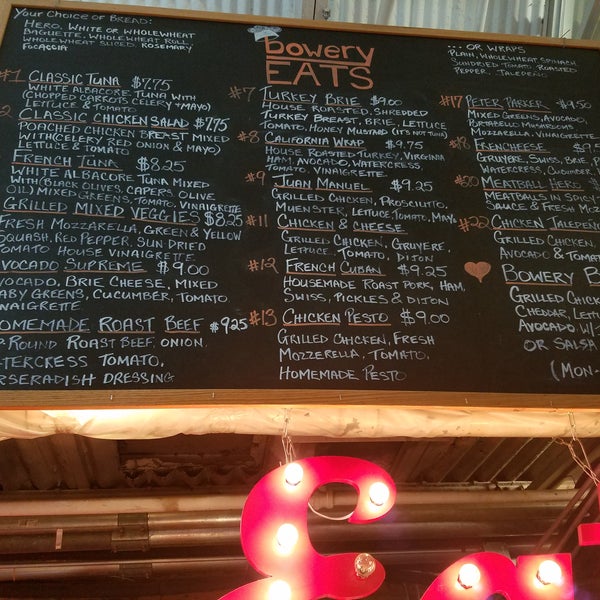 Your Choice of Bread:
Hero, White or Wholewheat
Baguette, Wholewheat Roll
Wholewheat Sliced, Rosemary
Focaccia
#1 Classic Tuna $7.75
White Albacore Tuna with
(Chopped Carrots Celery + Mayo)
Lettuce & Tomato
2 Classic Chicken Salad $7.75
Poached Chicken Breast Mixed
with (Celery Red Onion & Mayo)
Lettuce & Tomato
French Tuna $8.25
White Albacore Tuna Mixed
with (Black Olives, Capers, Olive
Oil) Mixed Greens, Tomato, Vinaigrette
Grilled Mixed Veggies $8.25
Fresh Mozzarella, Green & Yellow
Squash, Red Pepper, Sun Dried
Tomato House Vinaigrette
Avocado Supreme $9.00
Avocado, Brie Cheese, Mixed
Baby Greens, Cucumber, Tomato
Vinaigrette
Homemade Roast Beef $9.25
Round Roast Beef, Onion,
Watercress Tomato,
Horseradish Dressing
bowery
EATS
#7 Turkey Brie $9.00
House Roasted, Shredded
Turkey Breast, Brie, Lettuce
Tomato, Honey Mustard (It's Not Tuna)
#8 California Wrap $9.75
House Roasted Turkey, Virginia
Ham, Avocado, Watercress
Tomato, Vinaigrette.
#9 Juan Manuel $9.25
Grilled Chicken, Prosciutto,
Muenster, Lettuce, Tomato, Mayo
#11 Chicken & Cheese
Grilled Chicken, Gruyere,
Lettuce, Tomato, Dijon
#12 French Cuban $9.25
Housemade Roast Pork, Ham,
Swiss, Pickles & Dijon
#13 Chicken Pesto $9.00
Grilled Chicken, Fresh
Mozzerella, Tomato,
Homemade Pesto
... or Wraps
Plain, Wholewheat Spinach
Sundried Tomato, Roasted
Pepper, Jalepeño
#17 Peter Parker $9.50
Mixed Greens, Avocado,
Portabello Mushrooms
Mozzarella, Vinaigrette
#18 Frencheese $9.
Gruyere, Swiss, Brie,
Watercress, Cucumber,
#20 Meatball Hero
Meatballs in Spicy
Sauce & Fresh Mozz
#22 Chicken Talepeño
Grilled Chicken,
Avocado & Tomat
Bowery B
Grilled Chick
Cheddar, Lett
Avocado w/
or Salsa
(Mon-